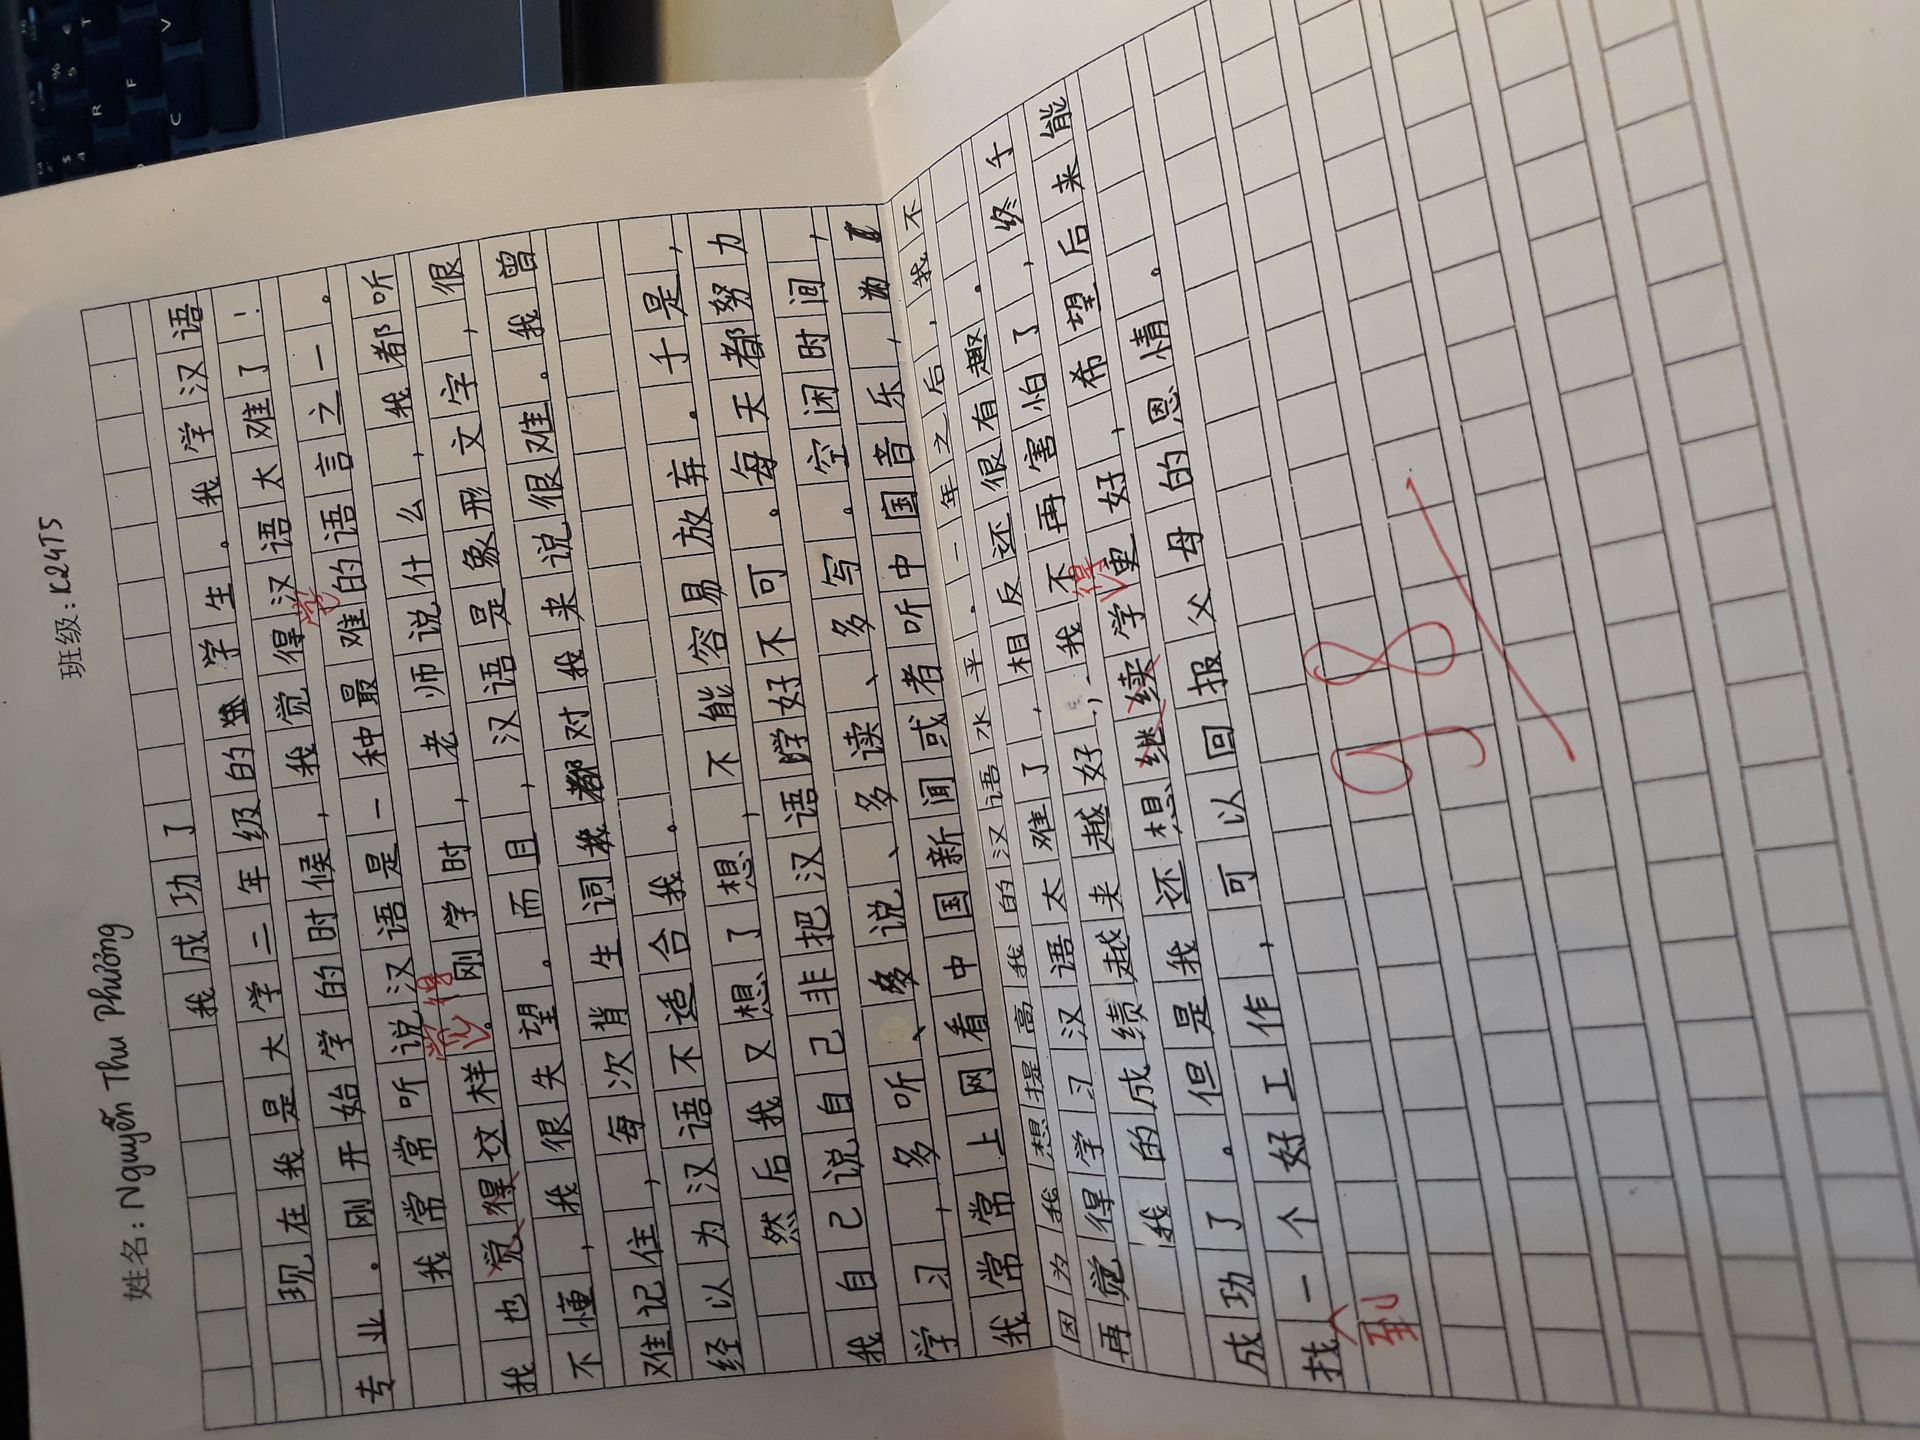 姓名：Nguyễn Thu Phương 班级：K24T5
我成功了
现在我是大学二年级的学生。我学汉语
专业。刚开始学的时候，我觉得汉语太难了！
我常常听说汉语是一种最难的语言之一。
觉
我也觉得这样。刚学时，老师说什么，我都听
觉得
不懂，我很失望。而且，汉语是象形文字，很
难记住，每次背生词都对我来说很难。我曾
经以为汉语不适合我。
然后我又想了想，不能容易放弃。于是，
我自己说自己非把汉语学好不可。每天都努力
学习，多听、多说、多读、多写。空闲时间，
我常常上网看中国新闻或者听中国音乐，为了
因为我想提高我的汉语水平。一年之后，我不
再觉得学习汉语太难了，相反还很有趣。
我的成绩越来越好，我不再害怕了，终于
成功了。但是我还想继续学更好，希望后来能
得
找一个好工作，可以回报父母的恩情。
到
98